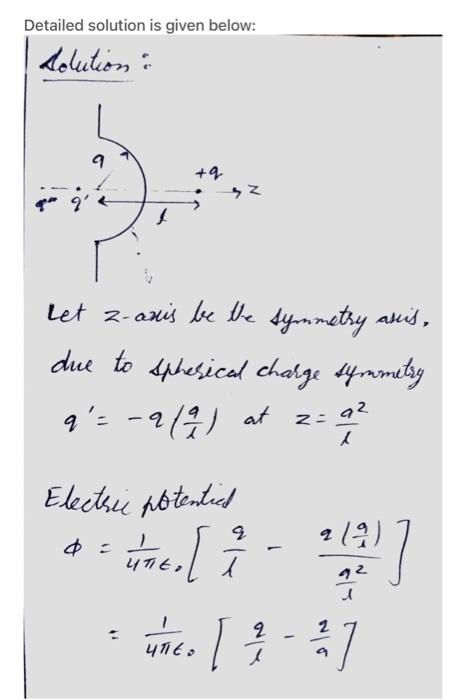 Detailed solution is given below:
Solution :
a
+q
z
q'
l
Let z-axis be the symmetry axis,
due to spherical charge symmetry
q' = -q (a/l) at z = a²/l
Electric potential
Φ = 1/4πε₀ [ q/l - q(a/l) / a²/l ]
= 1/4πε₀ [ q/l - q/a ]